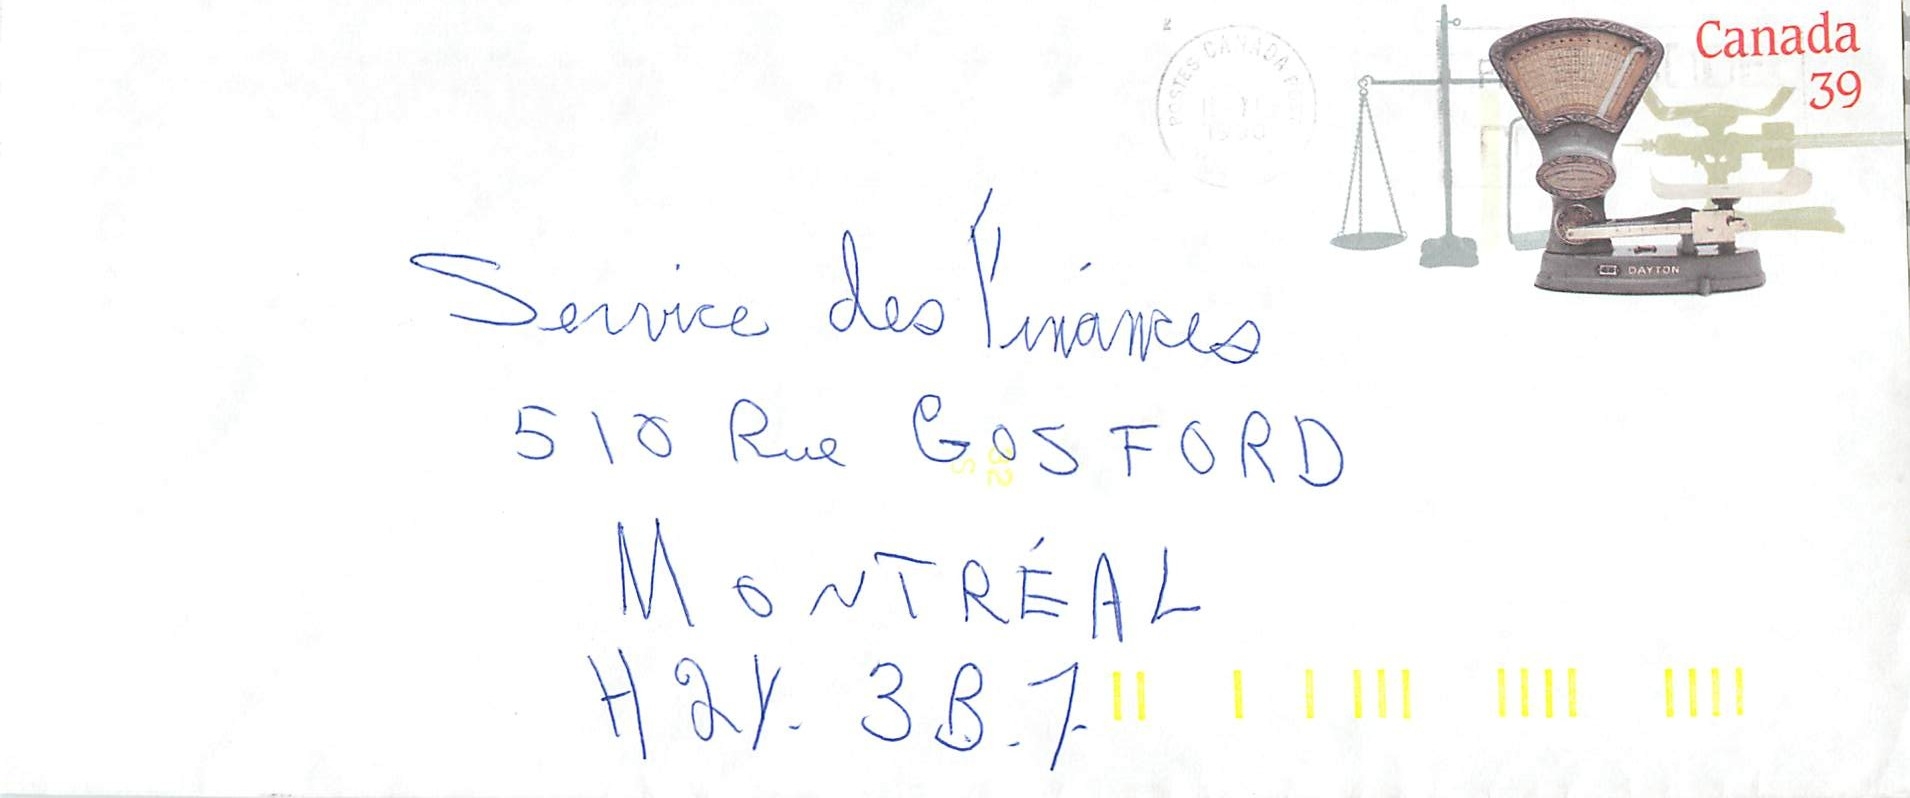 Canada
39
POSTES CANADA
DAYTON
Service des Finances
510 Rue GOSFORD
32
S
MONTRÉAL
H2Y. 3B.7